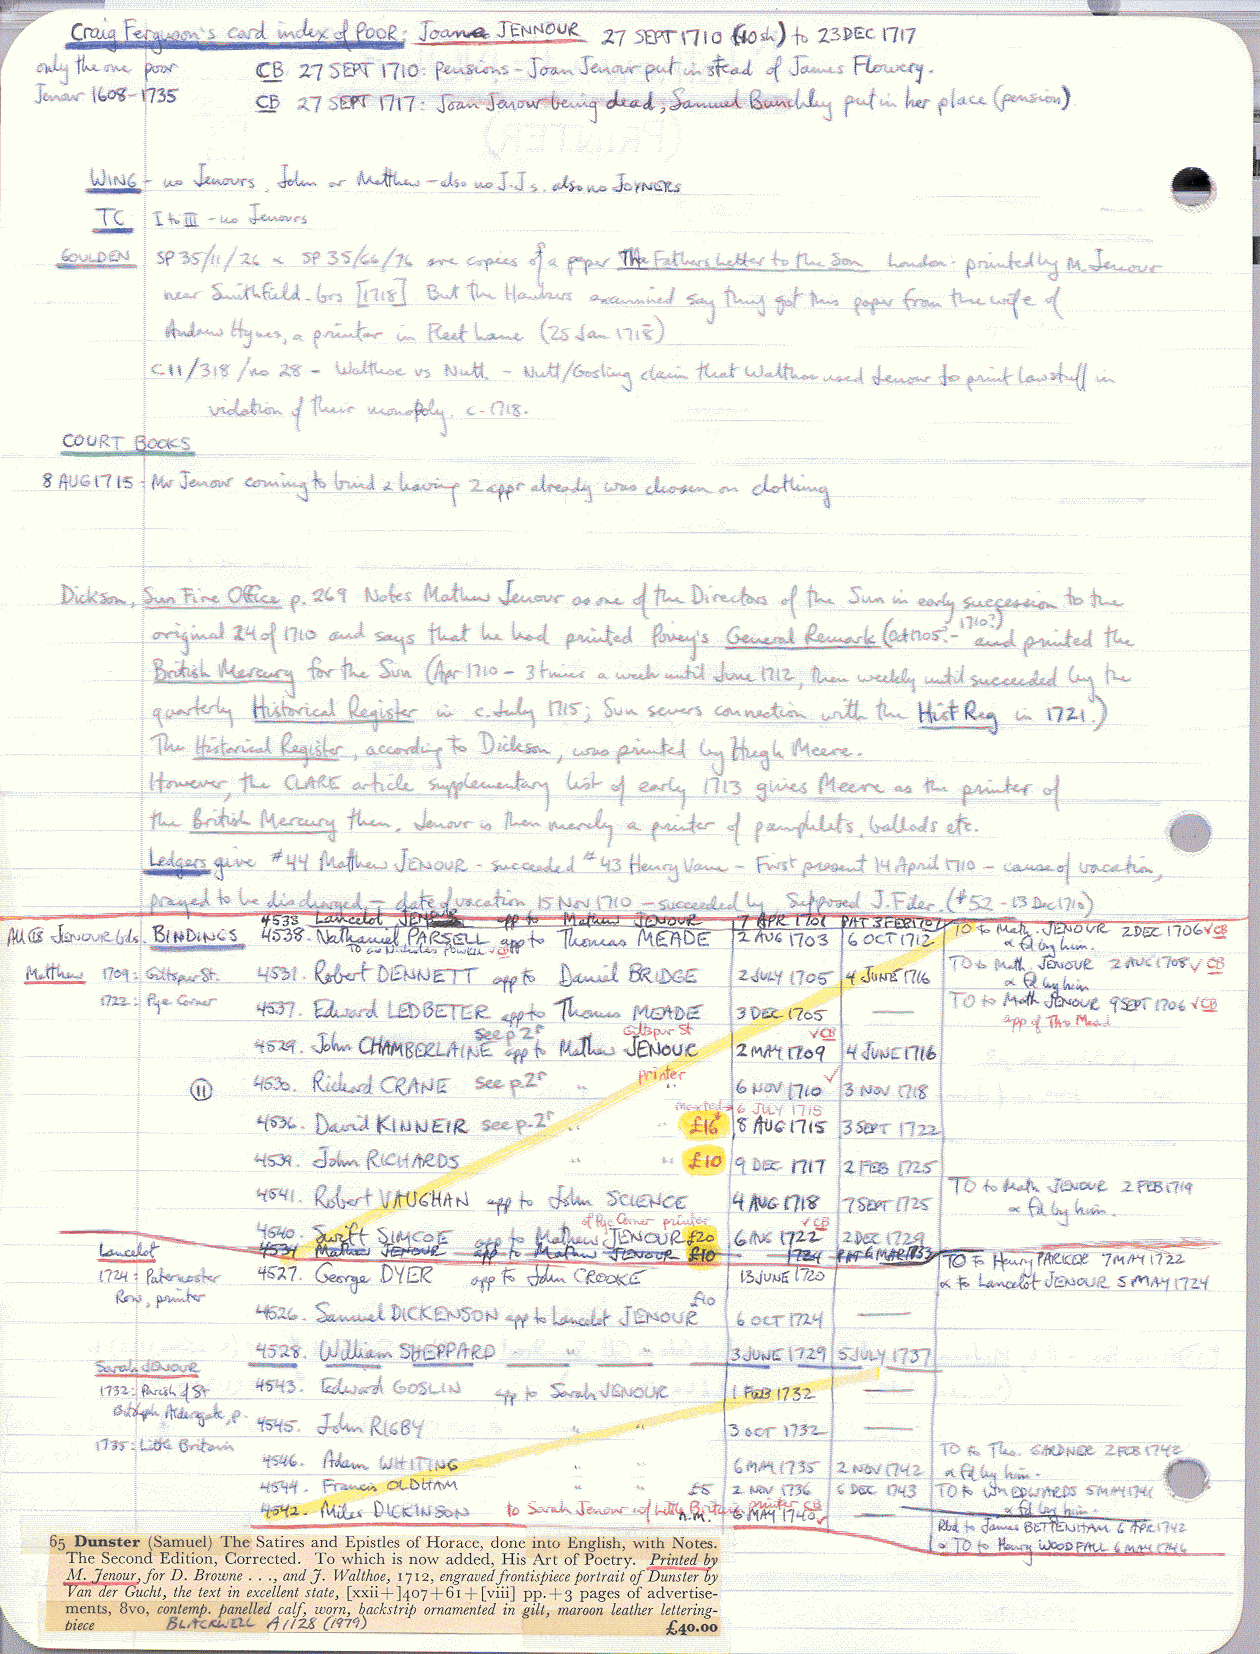 Craig Ferguson's card index of POOR: Joane JENNOUR 27 SEPT 1710 (10sh) to 23 DEC 1717
only the one poor CB 27 SEPT 1710: Pensions - Joan Jenour put in stead of James Flowery.
Jenour 1608-1735 CB 27 SEPT 1717: Joan Jenour being dead, Samuel Bunchley put in her place (pension)
WING - no Jenours, John or Matthew - also no J.J.s. also no JOYNERS
TC I to III - no Jenours
GOULDEN SP 35/11/26 & SP 35/66/76 are copies of a paper The Fathers Letter to the Son London: printed by M. Jenour
near Smithfield. brs [1718] But the Hawkers examined say they got this paper from the wife of
Andrew Hynes, a printer in Fleet Lane (25 Jan 1718)
C11/318/no 28 - Walthoe vs Nutt. - Nutt/Gosling claim that Walthoe used Jenour to print law stuff in
violation of their monopoly. c. 1718.
COURT BOOKS
8 AUG 1715: Mr Jenour coming to bind & having 2 appr already was chosen on clothing
Dickson, Sun Fire Office p. 269 Notes Mathew Jenour as one of the Directors of the Sun in early succession to the
original 24 of 1710 and says that he had printed Povey's General Remark (Oct 1705? - 1710?) and printed the
British Mercury for the Sun (Apr 1710 - 3 times a week until June 1712, then weekly until succeeded by the
quarterly Historical Register in c. July 1715; Sun severs connection with the Hist Reg in 1721.)
The Historical Register, according to Dickson, was printed by Hugh Meere.
However, the CLARE article supplementary list of early 1713 gives Meere as the printer of
the British Mercury then, Jenour is then merely a printer of pamphlets, ballads etc.
Ledgers give #44 Matthew JENOUR - succeeded #43 Henry Vane - First present 14 April 1710 - cause of vacation,
prayed to be discharged - date of vacation 15 NOV 1710 - succeeded by Supposed J. Filer. (#52 - 13 Dec 1710)
4533. Lancelot JENOUR app to Mathew JENOUR 7 APR 1701 PAT 3 FEB 1707
All JENOUR bds. BINDINGS 4538. Nathaniel PARSELL app to Thomas MEADE 2 AUG 1703 6 OCT 1712 TO to Math. JENOUR 2 DEC 1706 ✓CB
& fd by him.
Matthew 1709: Giltspur St. 4531. Robert DENNETT app to Daniel BRIDGE 2 JULY 1705 4 JUNE 1716 TO to Math. JENOUR 2 AUG 1708 ✓CB
& fd by him
1722: Pye Corner 4537. Edward LEDBETER app to Thomas MEADE 3 DEC 1705 — TO to Math JENOUR 9 SEPT 1706 ✓CB
app of Tho Mead
see p. 2r Giltspur St ✓CB
4529. John CHAMBERLAINE app to Mathew JENOUR 2 MAY 1709 4 JUNE 1716
printer ✓
11 4530. Richard CRANE see p. 2r " " 6 NOV 1710 3 NOV 1718
6 JULY 1715
4536. David KINNEIR see p. 2r " " £16 8 AUG 1715 3 SEPT 1722
4539. John RICHARDS " " £10 9 DEC 1717 2 FEB 1725
4541. Robert VAUGHAN app to John SCIENCE 4 AUG 1718 7 SEPT 1725 TO to Math JENOUR 2 FEB 1719
& fd by him.
of Pye Corner printer ✓CB
4540. Swift SIMCOE app to Mathew JENOUR £20 6 AUG 1722 2 DEC 1729
Lancelot 4534 Mathew JENOUR app to Mathew JENOUR £10 1724 PAT 6 MAR 1733
1724: Paternoster Row, printer 4527. George DYER app to John CROOKE 13 JUNE 1720 TO to Henry PARKER 7 MAY 1722
& to Lancelot JENOUR 5 MAY 1724
£10
4526. Samuel DICKENSON app to Lancelot JENOUR 6 OCT 1724 —
4528. William SHEPPARD " " 3 JUNE 1729 5 JULY 1737
Sarah JENOUR
1732: Parish of St Botolph Aldersgate, p. 4543. Edward GOSLIN app to Sarah JENOUR 1 FEB 1732 —
4545. John RIGBY " " 3 OCT 1732 —
1735: Little Britain
4546. Adam WHITING " " 6 MAY 1735 2 NOV 1742 TO to Tho. GARDNER 2 FEB 1742
& fd by him.
4544. Francis OLDHAM " " £5 2 NOV 1736 6 DEC 1743 TO to Wm EDWARDS 5 MAY 1741
& fd by him.
4542. Miles DICKINSON to Sarah Jenour of Little Britain printer CB n.m. 6 MAY 1740 ✓ —
Rbd to James BETTENHAM 6 APR 1742
& TO to Henry WOODFALL 6 MAY 1746
65 Dunster (Samuel) The Satires and Epistles of Horace, done into English, with Notes.
The Second Edition, Corrected. To which is now added, His Art of Poetry. Printed by
M. Jenour, for D. Browne . . ., and J. Walthoe, 1712, engraved frontispiece portrait of Dunster by
Van der Gucht, the text in excellent state, [xxii+]407+61+[viii] pp.+3 pages of advertise-
ments, 8vo, contemp. panelled calf, worn, backstrip ornamented in gilt, maroon leather lettering-
piece BLACKWELL A1128 (1979) £40.00